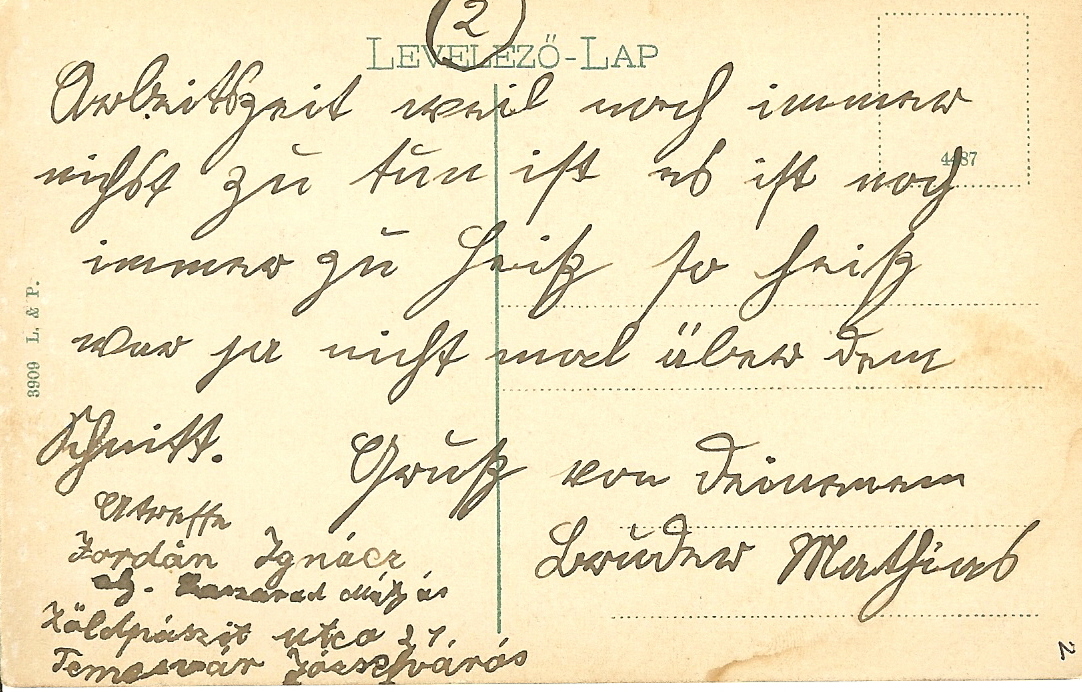 2
LEVELEZŐ-LAP
Arbeitszeit weil noch immer
4487
nichst zu tun ist es ist noch
immer zu heiß so heiß
war ja nicht mal über dem
Schnitt.
Gruß von deinemem
Bruder Mathias
Atresse
Jordán Ignácz
Mátyás
Zöldpászit utca 21.
Temesvár Józsefváros
3909 L. & P.
2